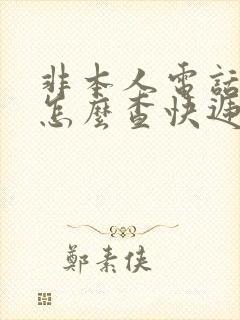 非本人電話
怎麼查快遞
鄭素俠